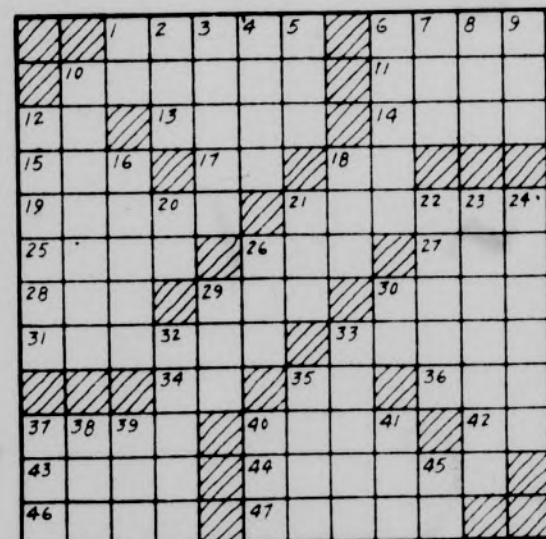 1 2 3 4 5 6 7 8 9
10 11
12 13 14
15 16 17 18
19 20 21 22 23 24
25 26 27
28 29 30
31 32 33
34 35 36
37 38 39 40 41 42
43 44 45
46 47